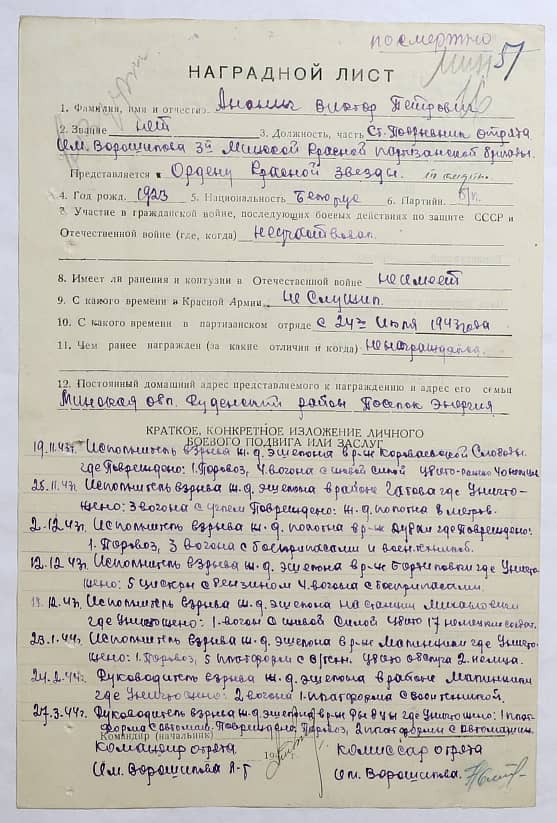 посмертно
51
НАГРАДНОЙ ЛИСТ
1. Фамилия, имя и отчество Ананич Виктор Петрович
2. Звание нет 3. Должность, часть Ст. Подрывник отряда
Им. Ворошилова 3й Минской Красной партизанской бригады.
Представляется к Ордену Красной Звезды.
4. Год рожд. 1923 5. Национальность Белорус 6. Партийн. б/п.
7. Участие в гражданской войне, последующих боевых действиях по защите СССР и
Отечественной войне (где, когда) неучаствовал.
8. Имеет ли ранения и контузии в Отечественной войне неимеет
9. С какого времени в Красной Армии неслужил.
10. С какого времени в партизанском отряде с 24го Июля 1943 года
11. Чем ранее награжден (за какие отличия и когда)
12. Постоянный домашний адрес представляемого к награждению и адрес его семьи
Минская овл. Руденский район Поселок Энергия
КРАТКОЕ, КОНКРЕТНОЕ ИЗЛОЖЕНИЕ ЛИЧНОГО
БОЕВОГО ПОДВИГА ИЛИ ЗАСЛУГ
19.11.43г. Исполнитель взрыва ж.д. эшелона в р-не Слободы
где Повреждено: 1. Поровоз, 4 вогона с живой силой
25.11.43г. Исполнитель взрыва ж.д. эшелона в районе Гатова где Уничто-
жено: 3 вогона с углем Повреждено: ж.д. полотна 8 метров.
2.12.43г. Исполнитель взрыва ж.д. полотна в р-не где Повреждено:
1. Поровоз, 3 вогона с боеприпасами и
12.12.43г. Исполнитель взрыва ж.д. эшелона в р-не где Уничто-
жено: 5 цистерн с бензином 4. вогона с боеприпасами.
12.43г. Исполнитель взрыва ж.д. эшелона на станции Михановичи
где Уничтожено: 1. вогон с живой силой убито 17 немецких солдат.
1.44г. Исполнитель взрыва ж.д. эшелона в р-не где Уничто-
жено: 1. Поровоз, 5 платформ с убито 2. немца.
2.44г. Руководитель взрыва ж.д. эшелона в районе
где Уничтожено: 2 вогона 1. платформа с
27.3.44г. Руководитель взрыва ж.д. эшелона в р-не где Уничтожено: 1 плат-
форма с Повреждено: Поровоз, 2 платформы с автомашин.
Командир (начальник)
194 г.
Командир отряда комиссар отряда
Им. Ворошилова Л-т им. Ворошилова.